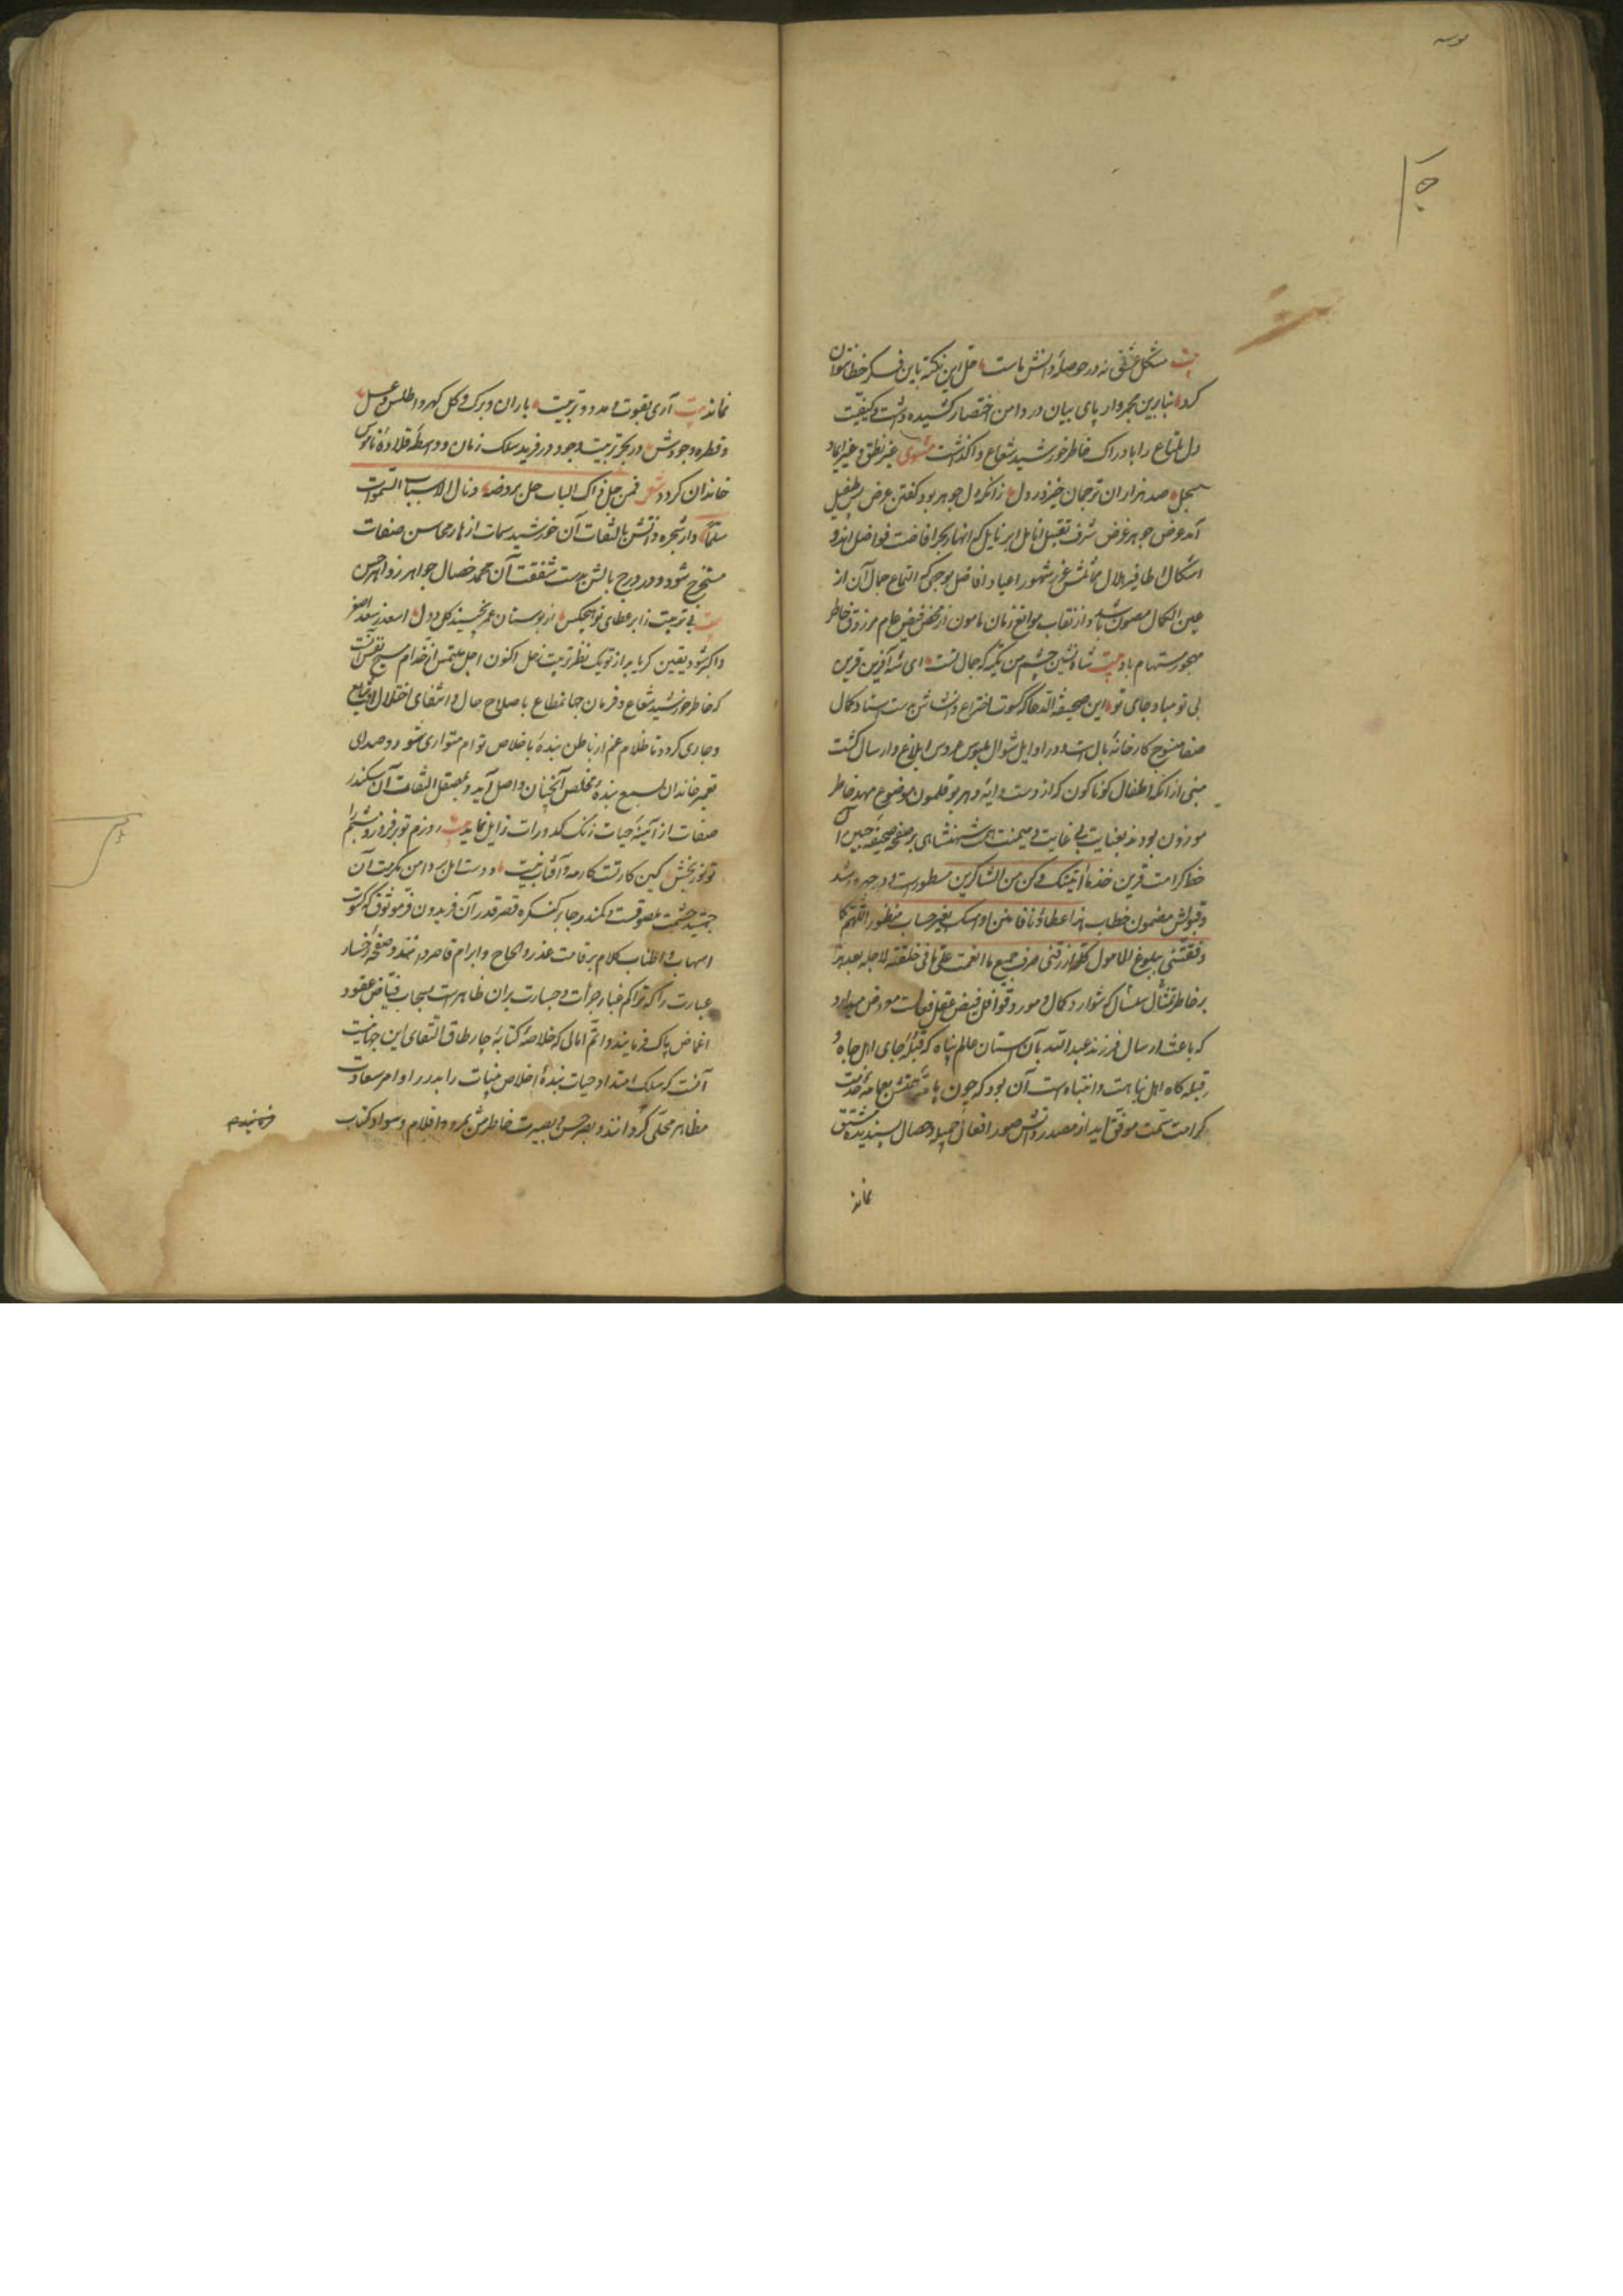 بیت مشکل عشق نه در حوصلهٔ دانش ماست حل این نکته باین فکر خطا نتوان
کرد بنابرین مجمروار پای بیان در دامن اختصار کشیده داشت و کیفیت
دل ملتاع را بادراک خاطر خورشید شعاع واگذاشت مثنوی غیر نطق و غیر ایما و
سجل صد هزاران ترجمان خیزد ز دل زانکه دل جوهر بود گفتن عرض پس طفیل
آمد عرض جوهر غرض شرف تقبیل انامل ابر نایل که انهار بحر افاضت فواضل اند و
اشکال اظافیر هلال مماثلش غرر شهور اعیاد افاضل بوجهی که التماع جمال آن از
عین الکمال مصون باشد و از نقاب موانع زمان مامون از محض فیض عام مرزوق خاطر
مهجور مستهام باد بیت شاه نشین چشم من تکیه که جمال تست ای شه آفرین قرین
بی تو مباد جای تو این صحیفة الدعا که کسوت اختراع و انشائش بدست استاد کمال
صفا منسوج کارخانهٔ بال است در اوایل شوال ملبوس عروس ابلاغ و ارسال گشت
مبنی از آنکه اطفال گوناگون که از دست دایهٔ دهر بوقلمون موضوع مهد خاطر
موزون بودند بعنایت بی غایت و میمنت شهنشاهی بر صفحهٔ صحیفهٔ جبین
خط کرامت قرین خذ ما آتیتک و کن من الشاکرین مسطور است و در چهره رشد
و قبولش مضمون خطاب هذا عطاؤنا فامنن او امسک بغیر حساب منظور اللهم کما
وفقتنی ببلوغ المامول کله ارزقنی صرف جمیع ما انعمت علی ما فی خلقته لاجله بعد هذا
بر خاطر که شوارد کمال و مورد قوافل فیض عقل فعالست معروض میدارد
که باعث ارسال فرزند عبدالله بآن آستان عالم پناه که قبلهٔ جای اهل جاه و
قبله گاه اهل نباهت و انتباه است آن بود که چون
کرامت سمت موفق آید از مصدر ذاتش صور افعال حمیده و خصال پسندیده مشتق
نماند
نماند بیت آری بقوت مدد و تربیت باران و برگ و گل گهر و اطلس و عسل
و قطره وجودش در بحر تربیت وجود در فرید سلک زمان و واسطهٔ قلادهٔ ناموس
خاندان گردد شعر فمن حل فی ذاک الباب حل بروضه و نال لاسباب السموات
سلما و از شجره ذاتش بالتفات آن خورشید سمات ازهار محاسن صفات
مستخرج شود و در درج بالش بدست شفقت آن محمد خصال جواهر زواهر حسن
بیت بی تربیت ز ابر عطای تو هیچکس از بوستان عمر نچیند گل دول اسعد ز سعد اصغر
و اکبر شود یقین گر یابد از تو یک نظر تربیت زحل اکنون اجل ملتمس از خدام مسیح نفس آنست
که خاطر خورشید شعاع و فرمان جهانمطاع باصلاح حال و انتفای اختلال
و جاری گردد تا ظلام غم از باطن بندهٔ باخلاص توام متواری شود و صدای
تعمیر خاندان بسمع بندهٔ مخلص آنچنان واصل آید و بمصقل التفات آن سکندر
صفات از آئینهٔ حیات زنگ کدورات زایل نماید بیت روزم تو برفروز و شبم را
تو نور بخش کین کار تست کار مه و آفتاب نیست و دست امل بر دامن مکرمت آن
جمشید حشمت ملصوقست و کمند رجا بر کنگره قصر قدر آن فریدون فر موثوق که کسوت
اسهاب و اطناب کلام بر قامت عذر و الحاح و ابرام قاصر دانند و صفحهٔ رخسار
عبارت را که تراکم غبار جرأت و جسارت بران ظاهر است بسحاب فیاض عفو
اغماض پاک فرمایند و اتم امالی که خلاصهٔ کتابهٔ چار طاق التقای این جهانیست
آنست که سلک امتداد حیات بندهٔ اخلاص منیات را بدرر اوامر سعادت
مظاهر محلی گردانند و بصر حس و بصیرت خاطرش بمرود اقلام و سواد کتاب